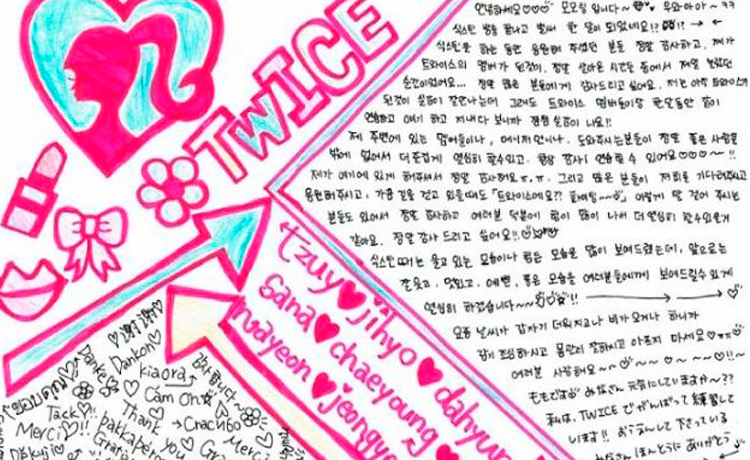 안녕하세요♡♡♡ 모모링 입니다~ 우와아아~
식스틴 방송 끝나고 벌써 한 달이 되었네요!? → ←
식스틴을 하는 동안 응원해 주셨던 분들 정말 감사하고, 제가
트와이스의 멤버가 된것이, 정말 살아온 시간들 중에서 제일 놀랐던
순간이었어요... 정말 많은 분들에게 감사드리고 싶어요. 저는 아직 트와이스가
된것이 실감이 잘안나는데 그래도 트와이스 멤버들이랑 한달동안 같이
연습하고 얘기 하고 지내다 보니까 점점 실감이 나요!!
제 주변에 있는 멤버들이나, 매니저언니나, 도와주시는분들이 정말 좋은 사람들
밖에 없어서 더 즐겁게 열심히 할수있고, 항상 감사히 연습할 수 있어요♡♡♡~!!
제가 여기에 있게 해주셔서 정말 감사해요ㅠ.ㅠ. 그리고 많은 분들이 저희를 기다려주시고
응원해주시고, 가끔 길을 걷고 있을때도 「트와이스에요?? 화이팅~~」 이렇게 말 걸어 주시는
분들도 있어서 정말 감사하고 여러분 덕분에 힘이 많이 나서 더 열심히 할수있는거
같아요. 정말 감사 드리고 싶어요!!
식스틴 때에는 울고 있는 모습이나 힘든 모습을 많이 보여드렸는데, 앞으로는
잘웃고, 멋있고, 예쁜, 좋은 모습을 여러분들에게 보여드릴수 있게
열심히 하겠습니다~~!! →
요즘 날씨가 갑자기 더워지고나 비가오거나 하니까
감기 조심하시고 몸관리 잘하시고 아프지 마세요♡ㅠㅠ
여러분 사랑해요~~ ♡~♡~~♡!!~
ももですよ みなさん 元気にしていますか~??
私は、TWICE でがんばって 練習して
います!! おうえんして 下さっている
みなさん ほんとうに ありがとう
TWICE
tzuyu♥jihyo♥dahyun
sana♥chaeyoung♥
nayeon♥jeongye
谢谢
Danke
Dankon
kiaora
감사합니다~
ขอบคุณ
Cảm Ơn
Tack
Thank you
Спасибо
Merci
pakka
Merci
Děkuji
Grati
Gr